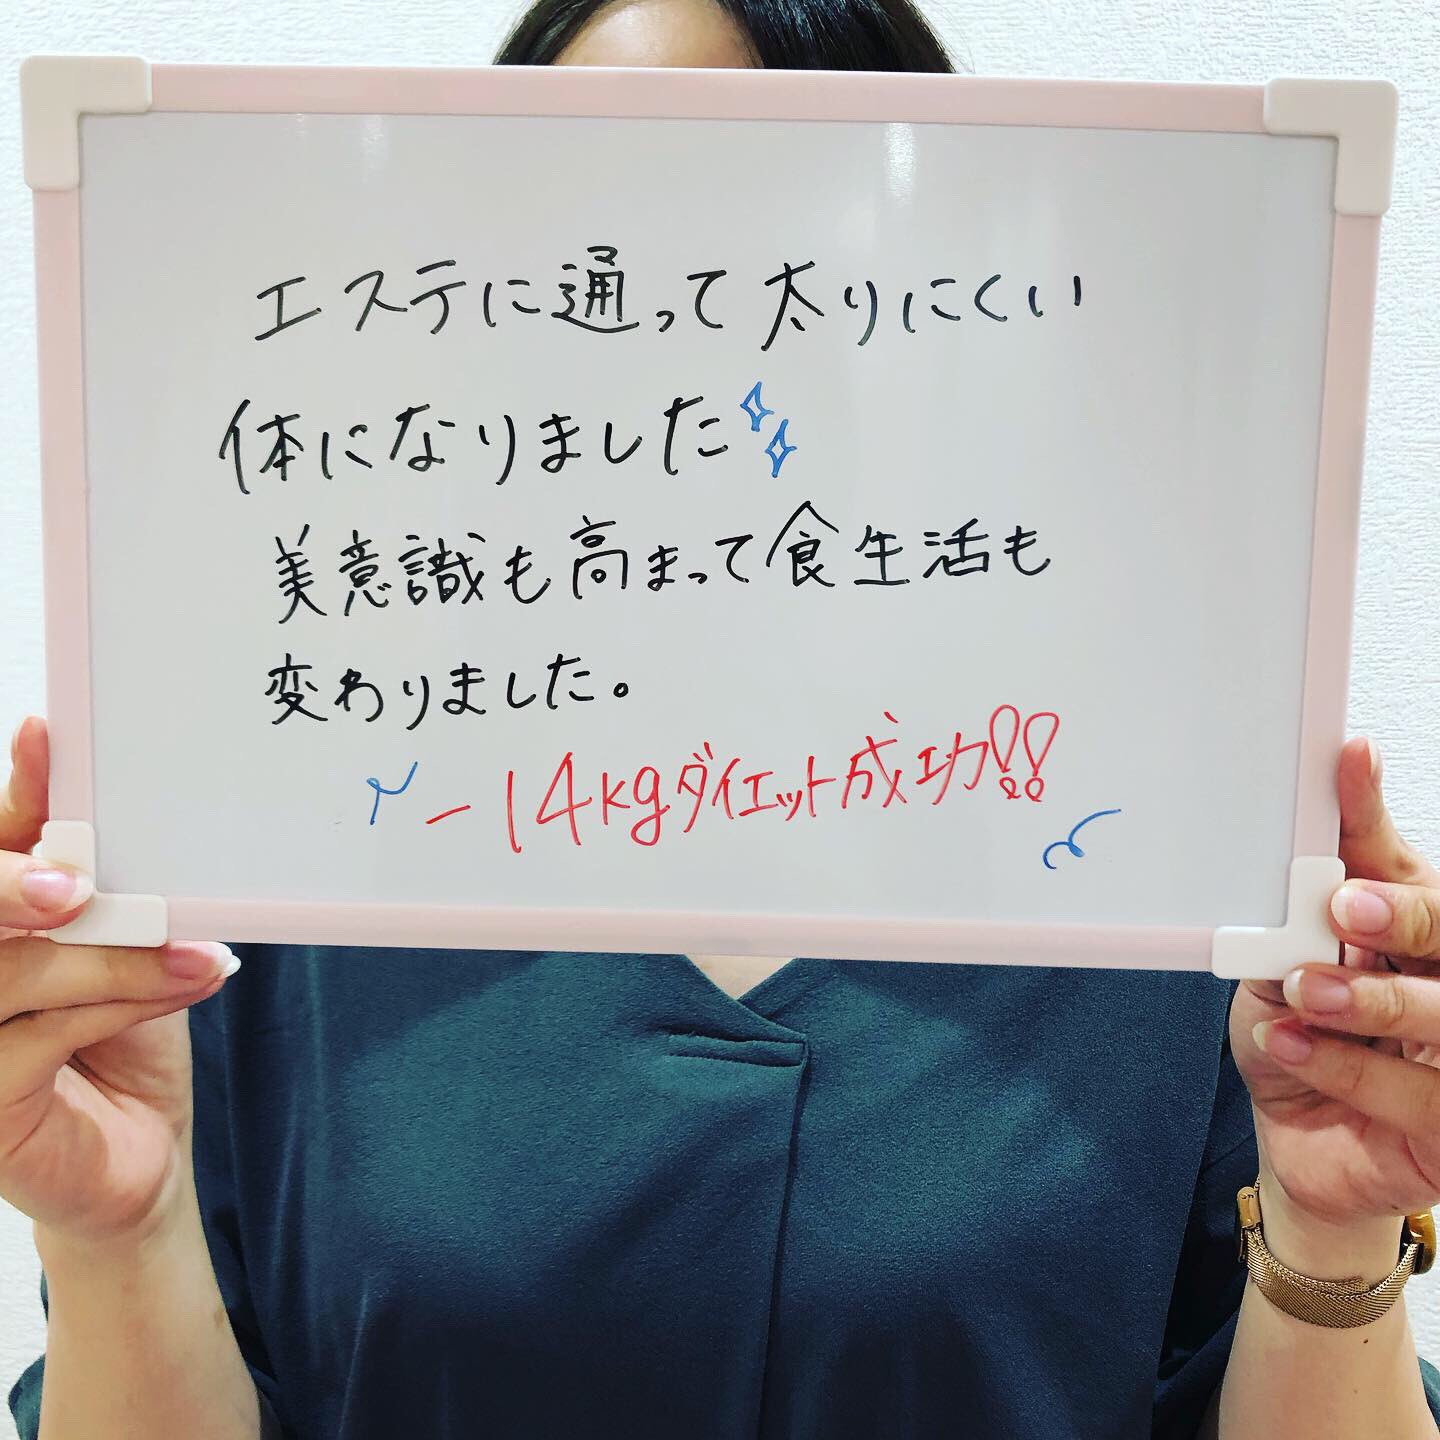 エステに通って太りにくい
体になりました
美意識も高まって食生活も
変わりました。
-14kgダイエット成功!!